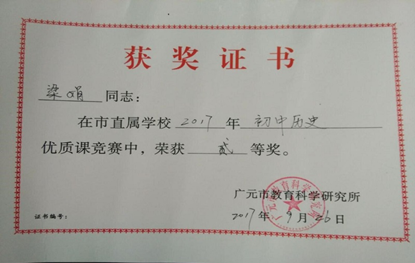 获奖证书
梁娟 同志：
在市直属学校 2017 年 初中历史
优质课竞赛中，荣获 贰 等奖。
广元市教育科学研究所
2017年 9月 26日
证书编号：
广元市教育科学研究所